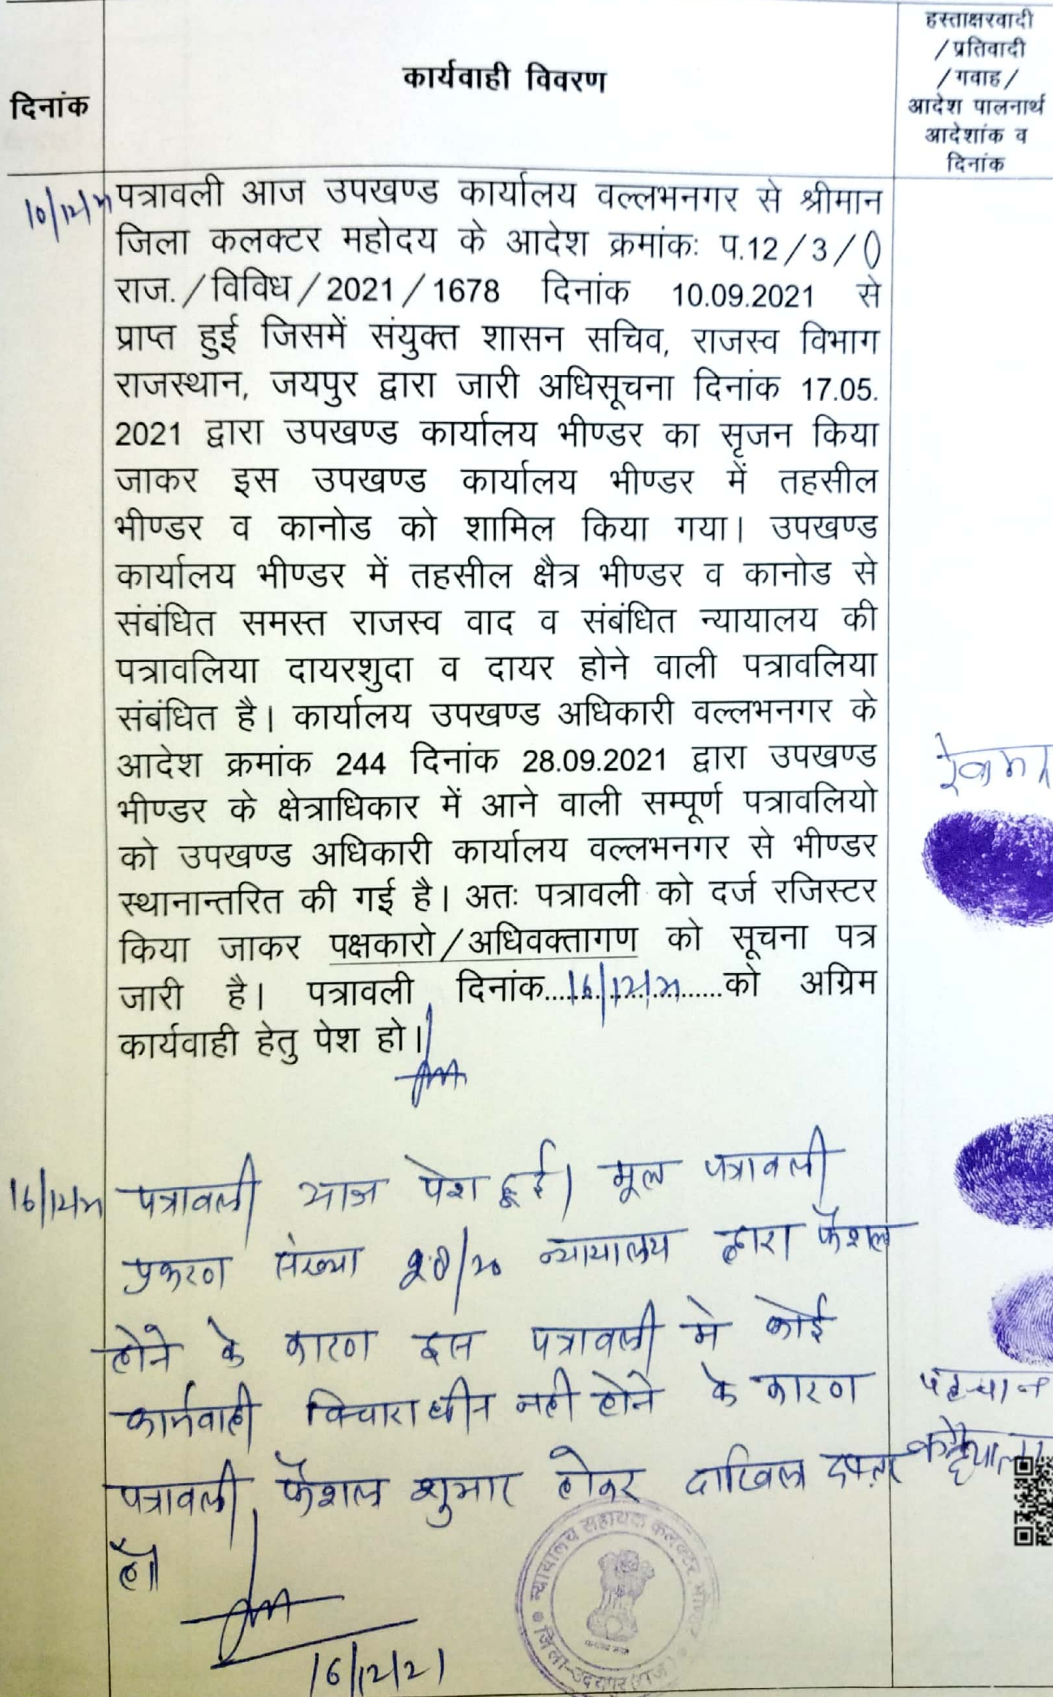 दिनांक
कार्यवाही विवरण
हस्ताक्षरवादी
/प्रतिवादी
/गवाह/
आदेश पालनार्थ
आदेशांक व
दिनांक
10/12/21
पत्रावली आज उपखण्ड कार्यालय वल्लभनगर से श्रीमान
जिला कलक्टर महोदय के आदेश क्रमांकः प.12/3/()
राज./विविध/2021/1678 दिनांक 10.09.2021 से
प्राप्त हुई जिसमें संयुक्त शासन सचिव, राजस्व विभाग
राजस्थान, जयपुर द्वारा जारी अधिसूचना दिनांक 17.05.
2021 द्वारा उपखण्ड कार्यालय भीण्डर का सृजन किया
जाकर इस उपखण्ड कार्यालय भीण्डर में तहसील
भीण्डर व कानोड को शामिल किया गया। उपखण्ड
कार्यालय भीण्डर में तहसील क्षैत्र भीण्डर व कानोड से
संबंधित समस्त राजस्व वाद व संबंधित न्यायालय की
पत्रावलिया दायरशुदा व दायर होने वाली पत्रावलिया
संबंधित है। कार्यालय उपखण्ड अधिकारी वल्लभनगर के
आदेश क्रमांक 244 दिनांक 28.09.2021 द्वारा उपखण्ड
भीण्डर के क्षेत्राधिकार में आने वाली सम्पूर्ण पत्रावलियो
को उपखण्ड अधिकारी कार्यालय वल्लभनगर से भीण्डर
स्थानान्तरित की गई है। अतः पत्रावली को दर्ज रजिस्टर
किया जाकर पक्षकारो/अधिवक्तागण को सूचना पत्र
जारी है। पत्रावली दिनांक...16/12/21...को अग्रिम
कार्यवाही हेतु पेश हो।
16/12/21
पत्रावली आज पेश हुई। मूल पत्रावली
प्रकरण संख्या 20/20 न्यायालय द्वारा फैशल
होने के कारण इस पत्रावली मे कोई
कार्यवाही विचाराधीन नही होने के कारण
पत्रावली फैशल शुमार होकर दाखिल दफ्तर
हो॥
16/12/21
पहचान
न्यायालय सहायक कलक्टर, भीण्डर
जिला-उदयपुर (राज.)